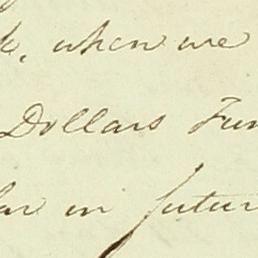 when we
Dollars Fun
in futur